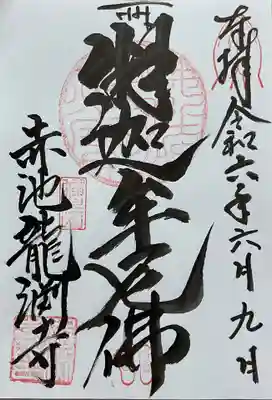 奉拝 令和六年六月九日
釋迦牟尼佛
赤池龍淵寺